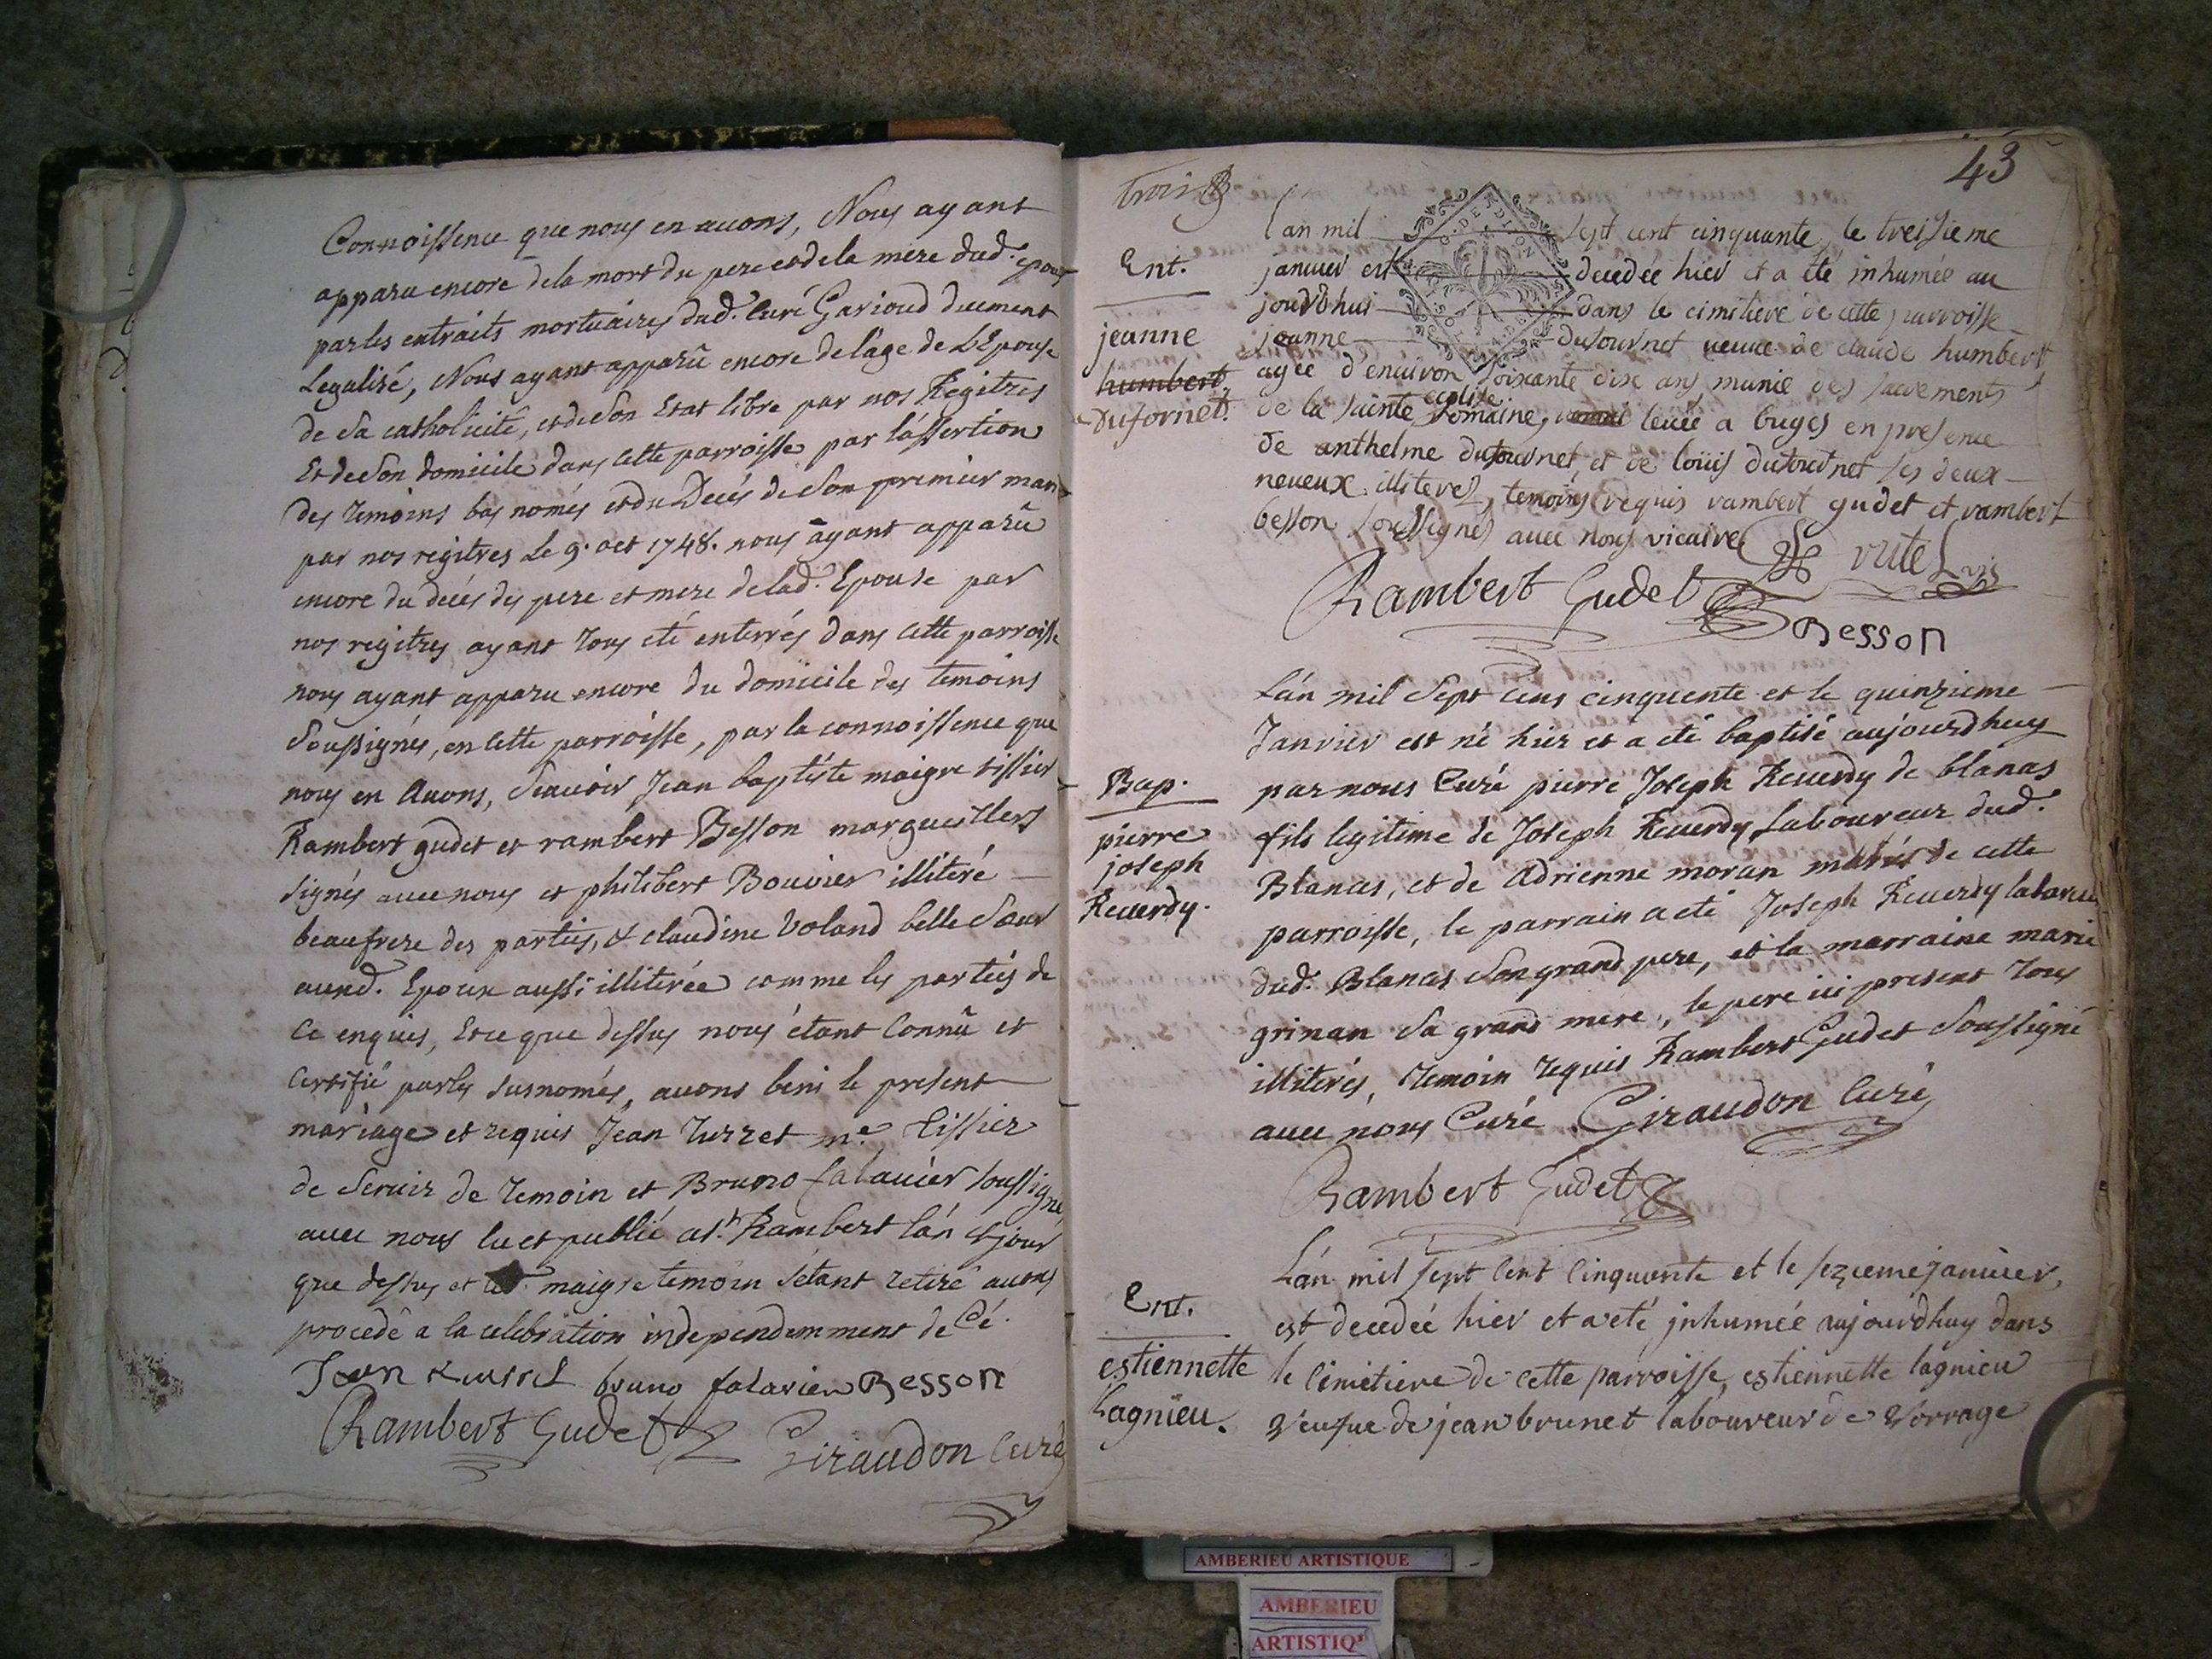 Connoissence que nous en avons, Nous ayant
apparu encore de la mort du pere et de la mere dud. epoux
par les extraits mortuaires dud. Curé Garioud duement
Legalisé, Nous ayant apparû encore de l'age de L'Epouse
de Sa catholicité, et de Son Etat libre par nos Regitres
Et de Son domicile dans cette parroisse par l'assertion
des temoins bas només et du Decés de Son premier mari
par nos regitres Le 9. oct 1748. nous ayant apparû
encore du decés des pere et mere de lad. Epouse par
nos regitres ayant tous eté enterrés dans cette parroisse
nous ayant apparu encore du domicile des temoins
Soussignés, en cette parroisse, par la connoissence que
nous en Avons, Scavoir Jean baptiste maigre tissier
Rambert gudet et rambert Besson marguilliers
signés avec nous et philibert Bouvier illiteré
beaufrere des parties, & claudine Voland belle Sœur
aund. Epoux aussi illiterée comme les parties de
ce enquis, Et ce que dessus nous étant Connû et
Certifié par les susnomés, avons beni le present
mariage et requis Jean Turret me. Tissier
de Servir de temoin et Bruno falavier soussigné
avec nous lu et publié a St. Rambert l'an & jour
que dessus et led. maigre temoin s'etant retiré avons
procedé a la celebration independemment de Cé.
Jean turret bruno falavier Besson
Rambert Gudet Giraudon Curé
43
trois
Ent.
jeanne
humbert
dufornet.
l'an mil sept cent cinquante, le treisieme
janvier est decedée hier et a été inhumée au
jourdhui dans le cimetiere de cette parroisse
jeanne dufournet veuve de claude humbert
agée d'environ soixante dix ans munie des sacrements
eglise
de la sainte Romaine, levée a buges en presence
de anthelme dufournet, et de loüis dufournet ses deux
neveux illiterés, temoins requis rambert gudet et rambert
besson soussignés avec nous vicaire
Rambert Gudet
Besson
Bap.
pierre
joseph
Reverdy.
L'an mil Sept cens cinquente et le quinzieme
Janvier est né hier et a eté baptisé aujourdhuy
par nous Curé pierre Joseph Reverdy de blanas
fils legitime de Joseph Reverdy Laboureur dud.
Blanas, et de Adrienne moran mariés de cette
parroisse, le parrain a eté Joseph Reverdy laboureur
dud. Blanas Son grand pere, et la marraine marie
grinan Sa grand mere, le pere ici present tous
illiterés, temoin requis Rambert Gudet Soussigné
avec nous Curé Giraudon Curé
Rambert Gudet
Ent.
estiennette
Lagnieu.
L'an mil sept cent cinquante et le sezieme janvier,
est decedée hier et a eté jnhumée aujourdhuy dans
le cimetiere de cette parroisse, estiennette lagnieu
veufve de jean brunet laboureur de Vorrage
AMBERIEU ARTISTIQUE
AMBERIEU
ARTISTIQ